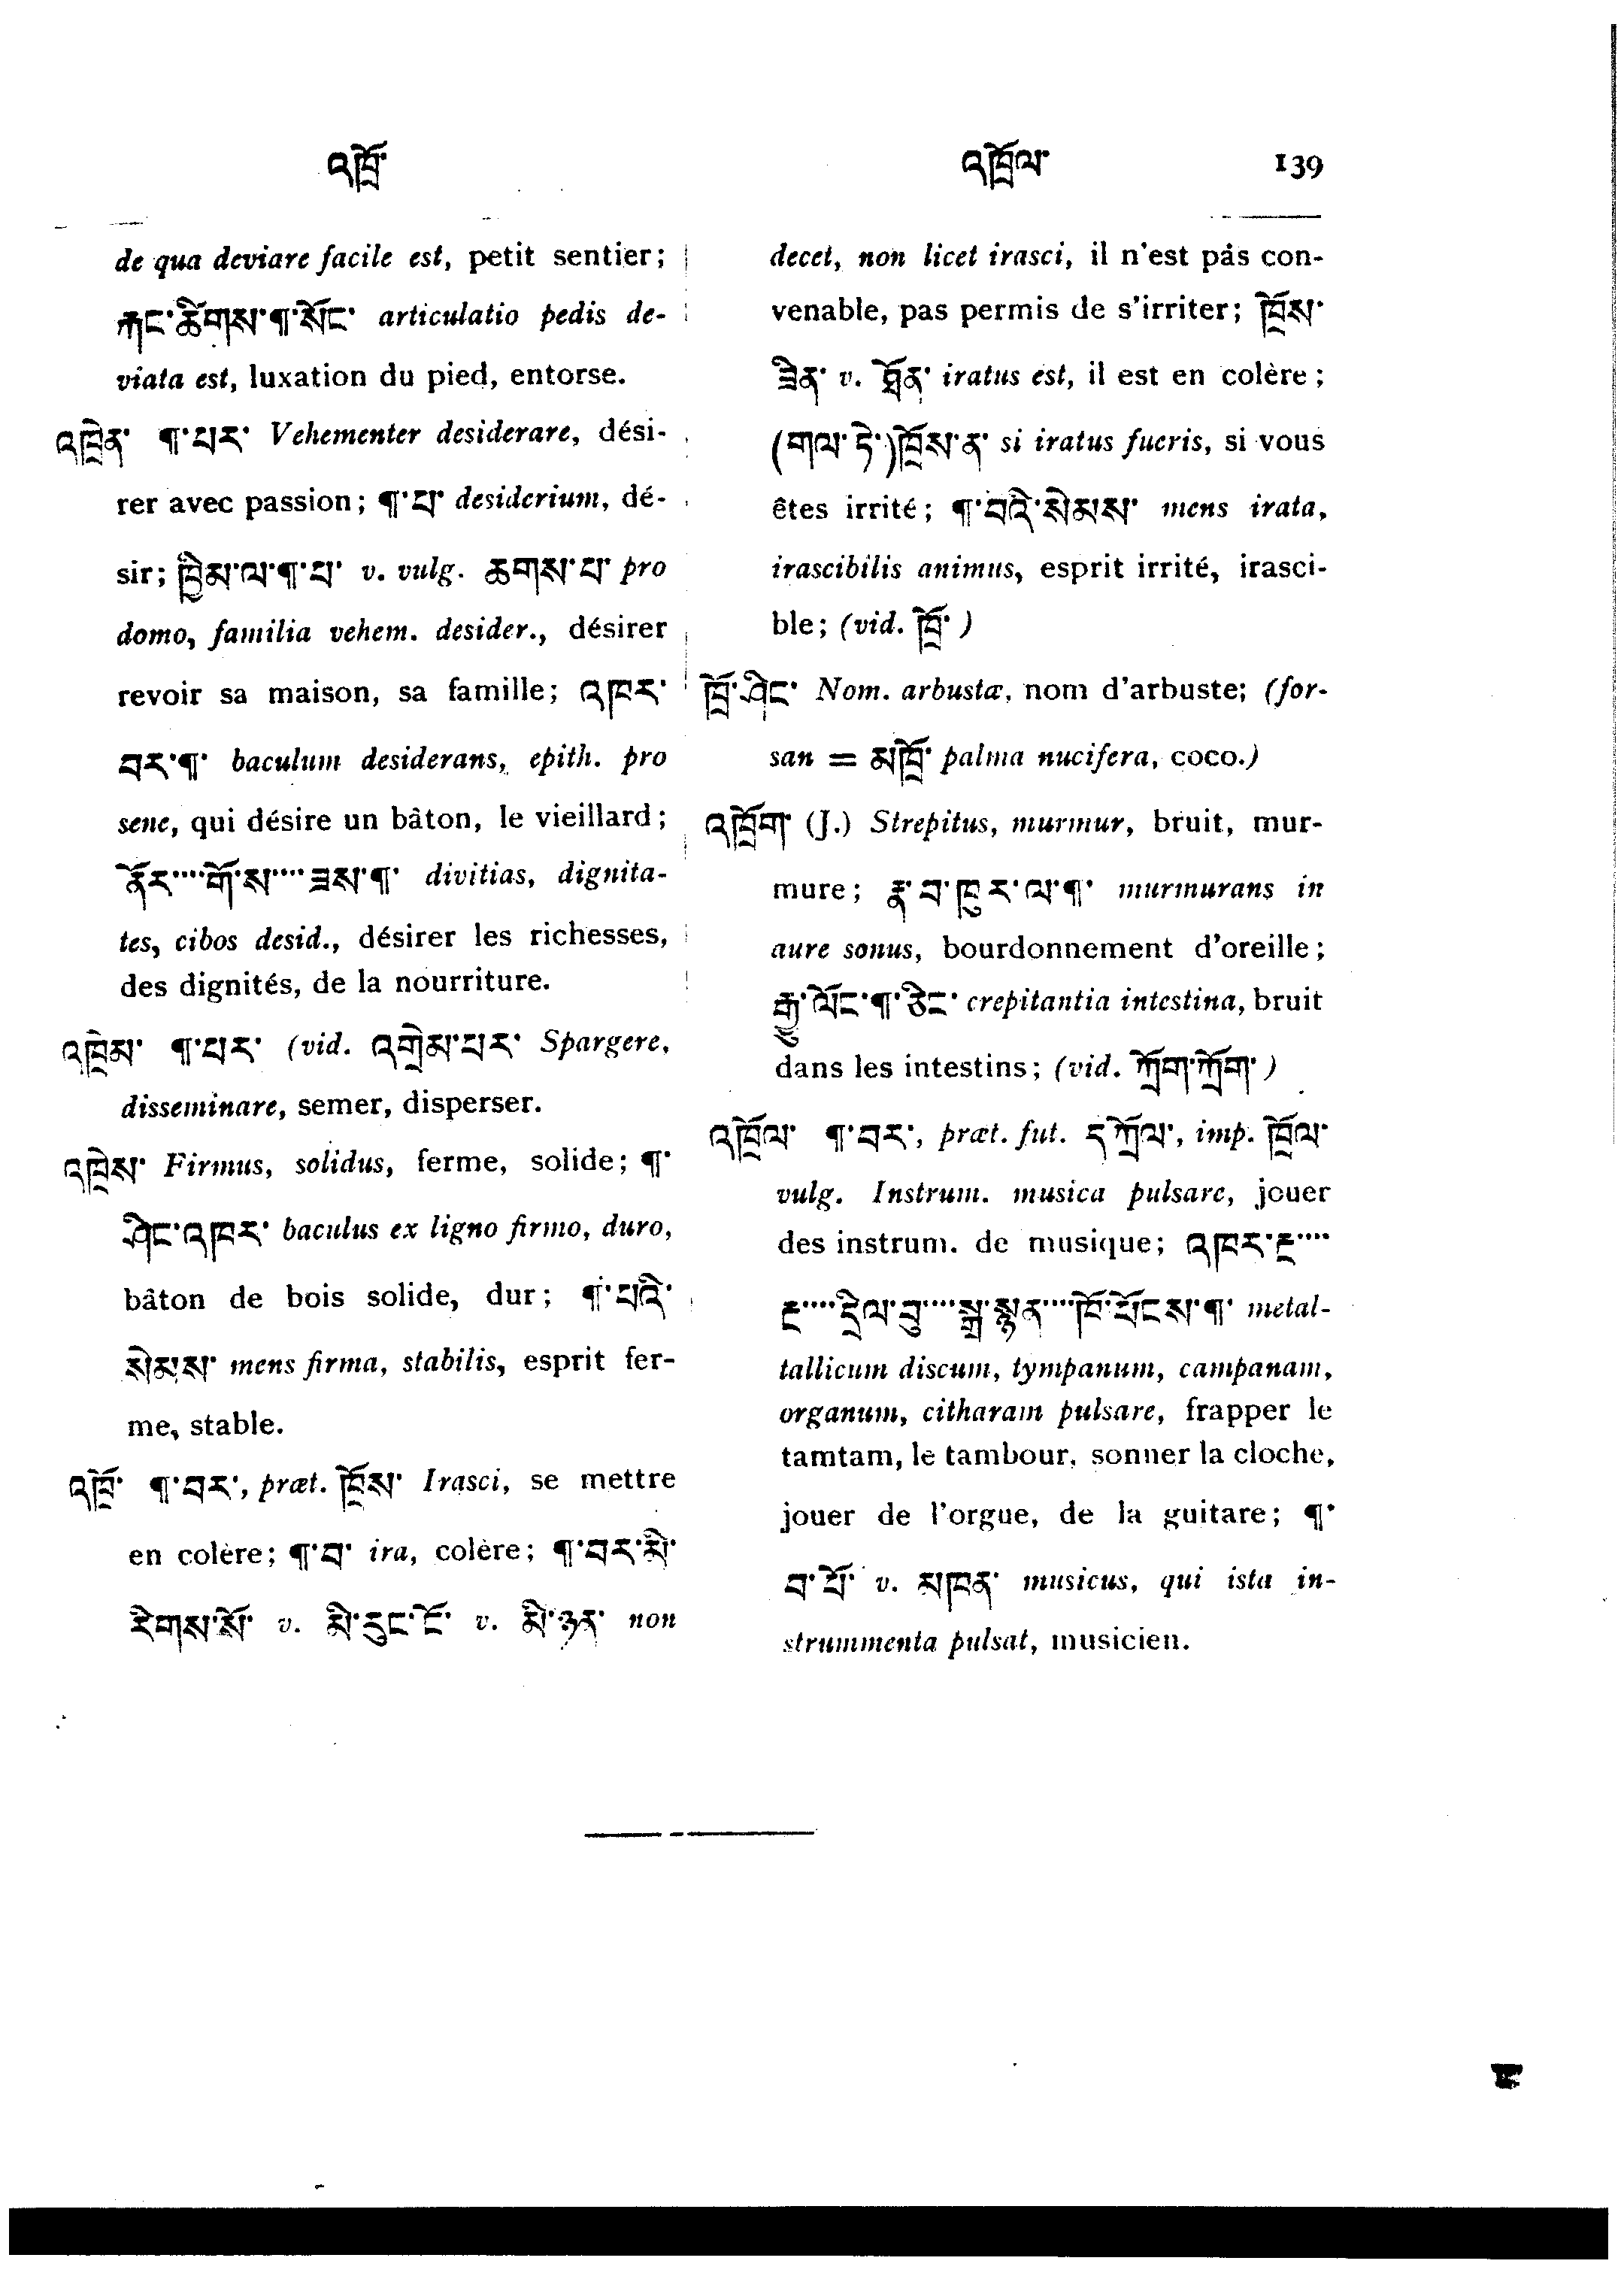 འཁྲོ་ འཁྲོལ་ 139
de qua deviare facile est, petit sentier;
རྐང་ཚིགས་¶་སོང་ articulatio pedis de-
viata est, luxation du pied, entorse.
འཁྲེན་ ¶་པར་ Vehementer desiderare, dési-
rer avec passion; ¶་པ་ desiderium, dé-
sir; ཁྱིམ་ལ་¶་པ་ v. vulg. ཆགས་པ་ pro
domo, familia vehem. desider., désirer
revoir sa maison, sa famille; འཁར་
བར་¶་ baculum desiderans, epith. pro
sene, qui désire un bâton, le vieillard;
ནོར་་་་གོ་ས་་་་ཟས་¶་ divitias, dignita-
tes, cibos desid., désirer les richesses,
des dignités, de la nourriture.
འཁྲེམ་ ¶་པར་ (vid. འགྲེམ་པར་ Spargere,
disseminare, semer, disperser.
འཁྲེས་ Firmus, solidus, ferme, solide; ¶་
ཤིང་འཁར་ baculus ex ligno firmo, duro,
bâton de bois solide, dur; ¶་པའི་
སེམས་ mens firma, stabilis, esprit fer-
me, stable.
འཁྲོ་ ¶་བར་, præt. ཁྲོས་ Irasci, se mettre
en colère; ¶་བ་ ira, colère; ¶་བར་མི་
རིགས་སོ་ v. མི་རུང་ངོ་ v. མི་ཉན་ non
decet, non licet irasci, il n'est pas con-
venable, pas permis de s'irriter; ཁྲོས་
ཟིན་ v. ཐོན་ iratus est, il est en colère;
(གལ་ཏེ་)ཁྲོས་ན་ si iratus fueris, si vous
êtes irrité; ¶་བའི་སེམས་ mens irata,
irascibilis animus, esprit irrité, irasci-
ble; (vid. ཁྲོ་ )
ཁྲོ་ཤིང་ Nom. arbustæ, nom d'arbuste; (for-
san = མཁྲོ་ palma nucifera, coco.)
འཁྲོག་ (J.) Strepitus, murmur, bruit, mur-
mure; རྣ་བ་ཁུར་ལ་¶་ murmurans in
aure sonus, bourdonnement d'oreille;
རྒྱུ་ལོང་¶་ཅིང་ crepitantia intestina, bruit
dans les intestins; (vid. ཀྲོག་ཀྲོག་ )
འཁྲོལ་ ¶་བར་, præt. fut. དཀྲོལ་, imp. ཁྲོལ་
vulg. Instrum. musica pulsare, jouer
des instrum. de musique; འཁར་རྔ་་་་
རྔ་་་་དྲིལ་བུ་་་་སྒྲ་སྙན་་་་ཁོ་པོངས་¶་ metal-
tallicum discum, tympanum, campanam,
organum, citharam pulsare, frapper le
tamtam, le tambour, sonner la cloche,
jouer de l'orgue, de la guitare; ¶་
བ་པོ་ v. མཁན་ musicus, qui ista in-
strummenta pulsat, musicien.